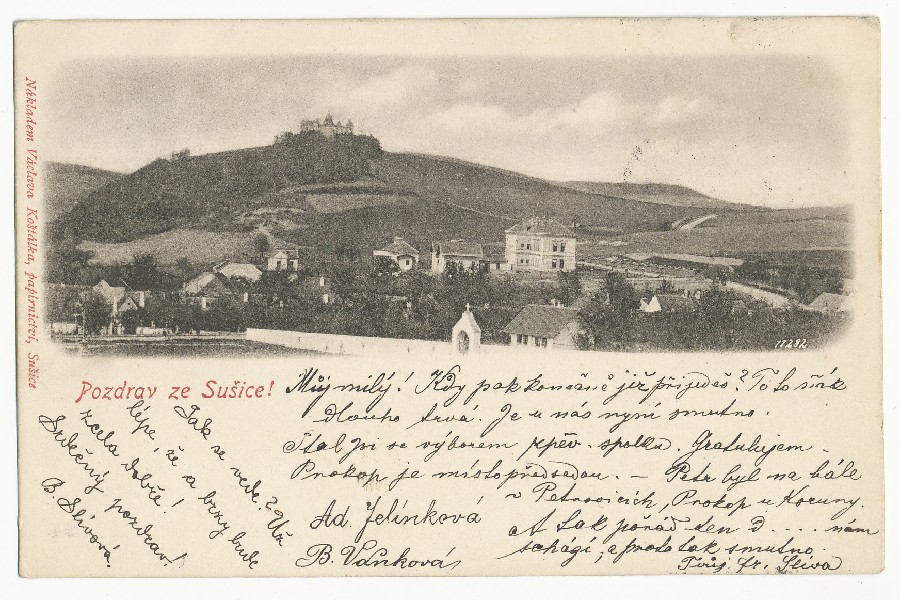 Nákladem Václava Košťálka, papírnictví, Sušice
11282
Pozdrav ze Sušice!
Můj milý! Kdy pak konečně již přijedeš? To to však
dlouho trvá. Je u nás nyní smutno.
Stal jsi se výborem zpěv. spolku. Gratulujem.
Prokop je místopředsedou. – Petr byl na bále
v Petrovicích, Prokop u Koruny.
A tak pořád ten d .... nám
schází, a proto tak smutno.
Tvůj fr. Slíva
Ad. Jelínková
B. Vaňková
Jak se vede? Už
lépe, že a brzy bude
zcela dobře!
Srdečný pozdrav!
B. Slívová.